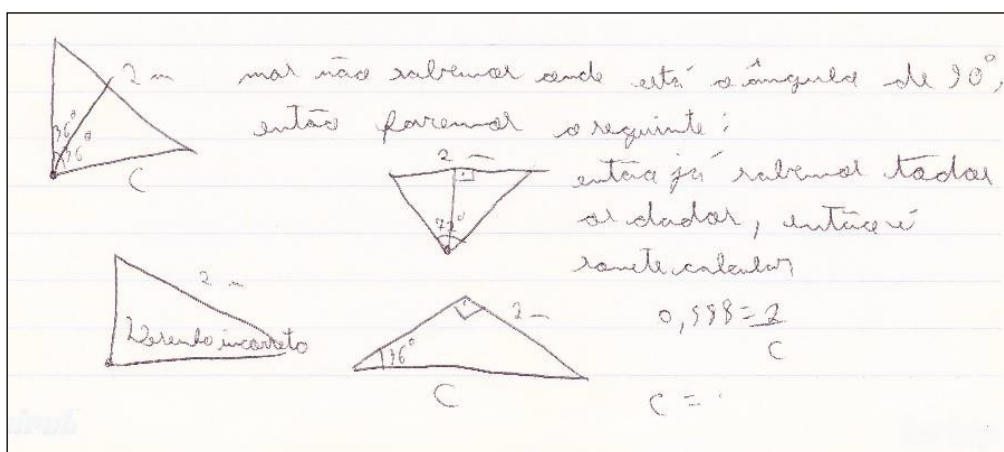 2 m mas não sabemos onde está o ângulo de 90°,
então faremos o seguinte:
36°
36°
C
2 m
então já sabemos todos
os dados, então é
somente calcular
72°
2 m
Desenho incorreto
2 m
36°
C
0,588 = 2
C
C =